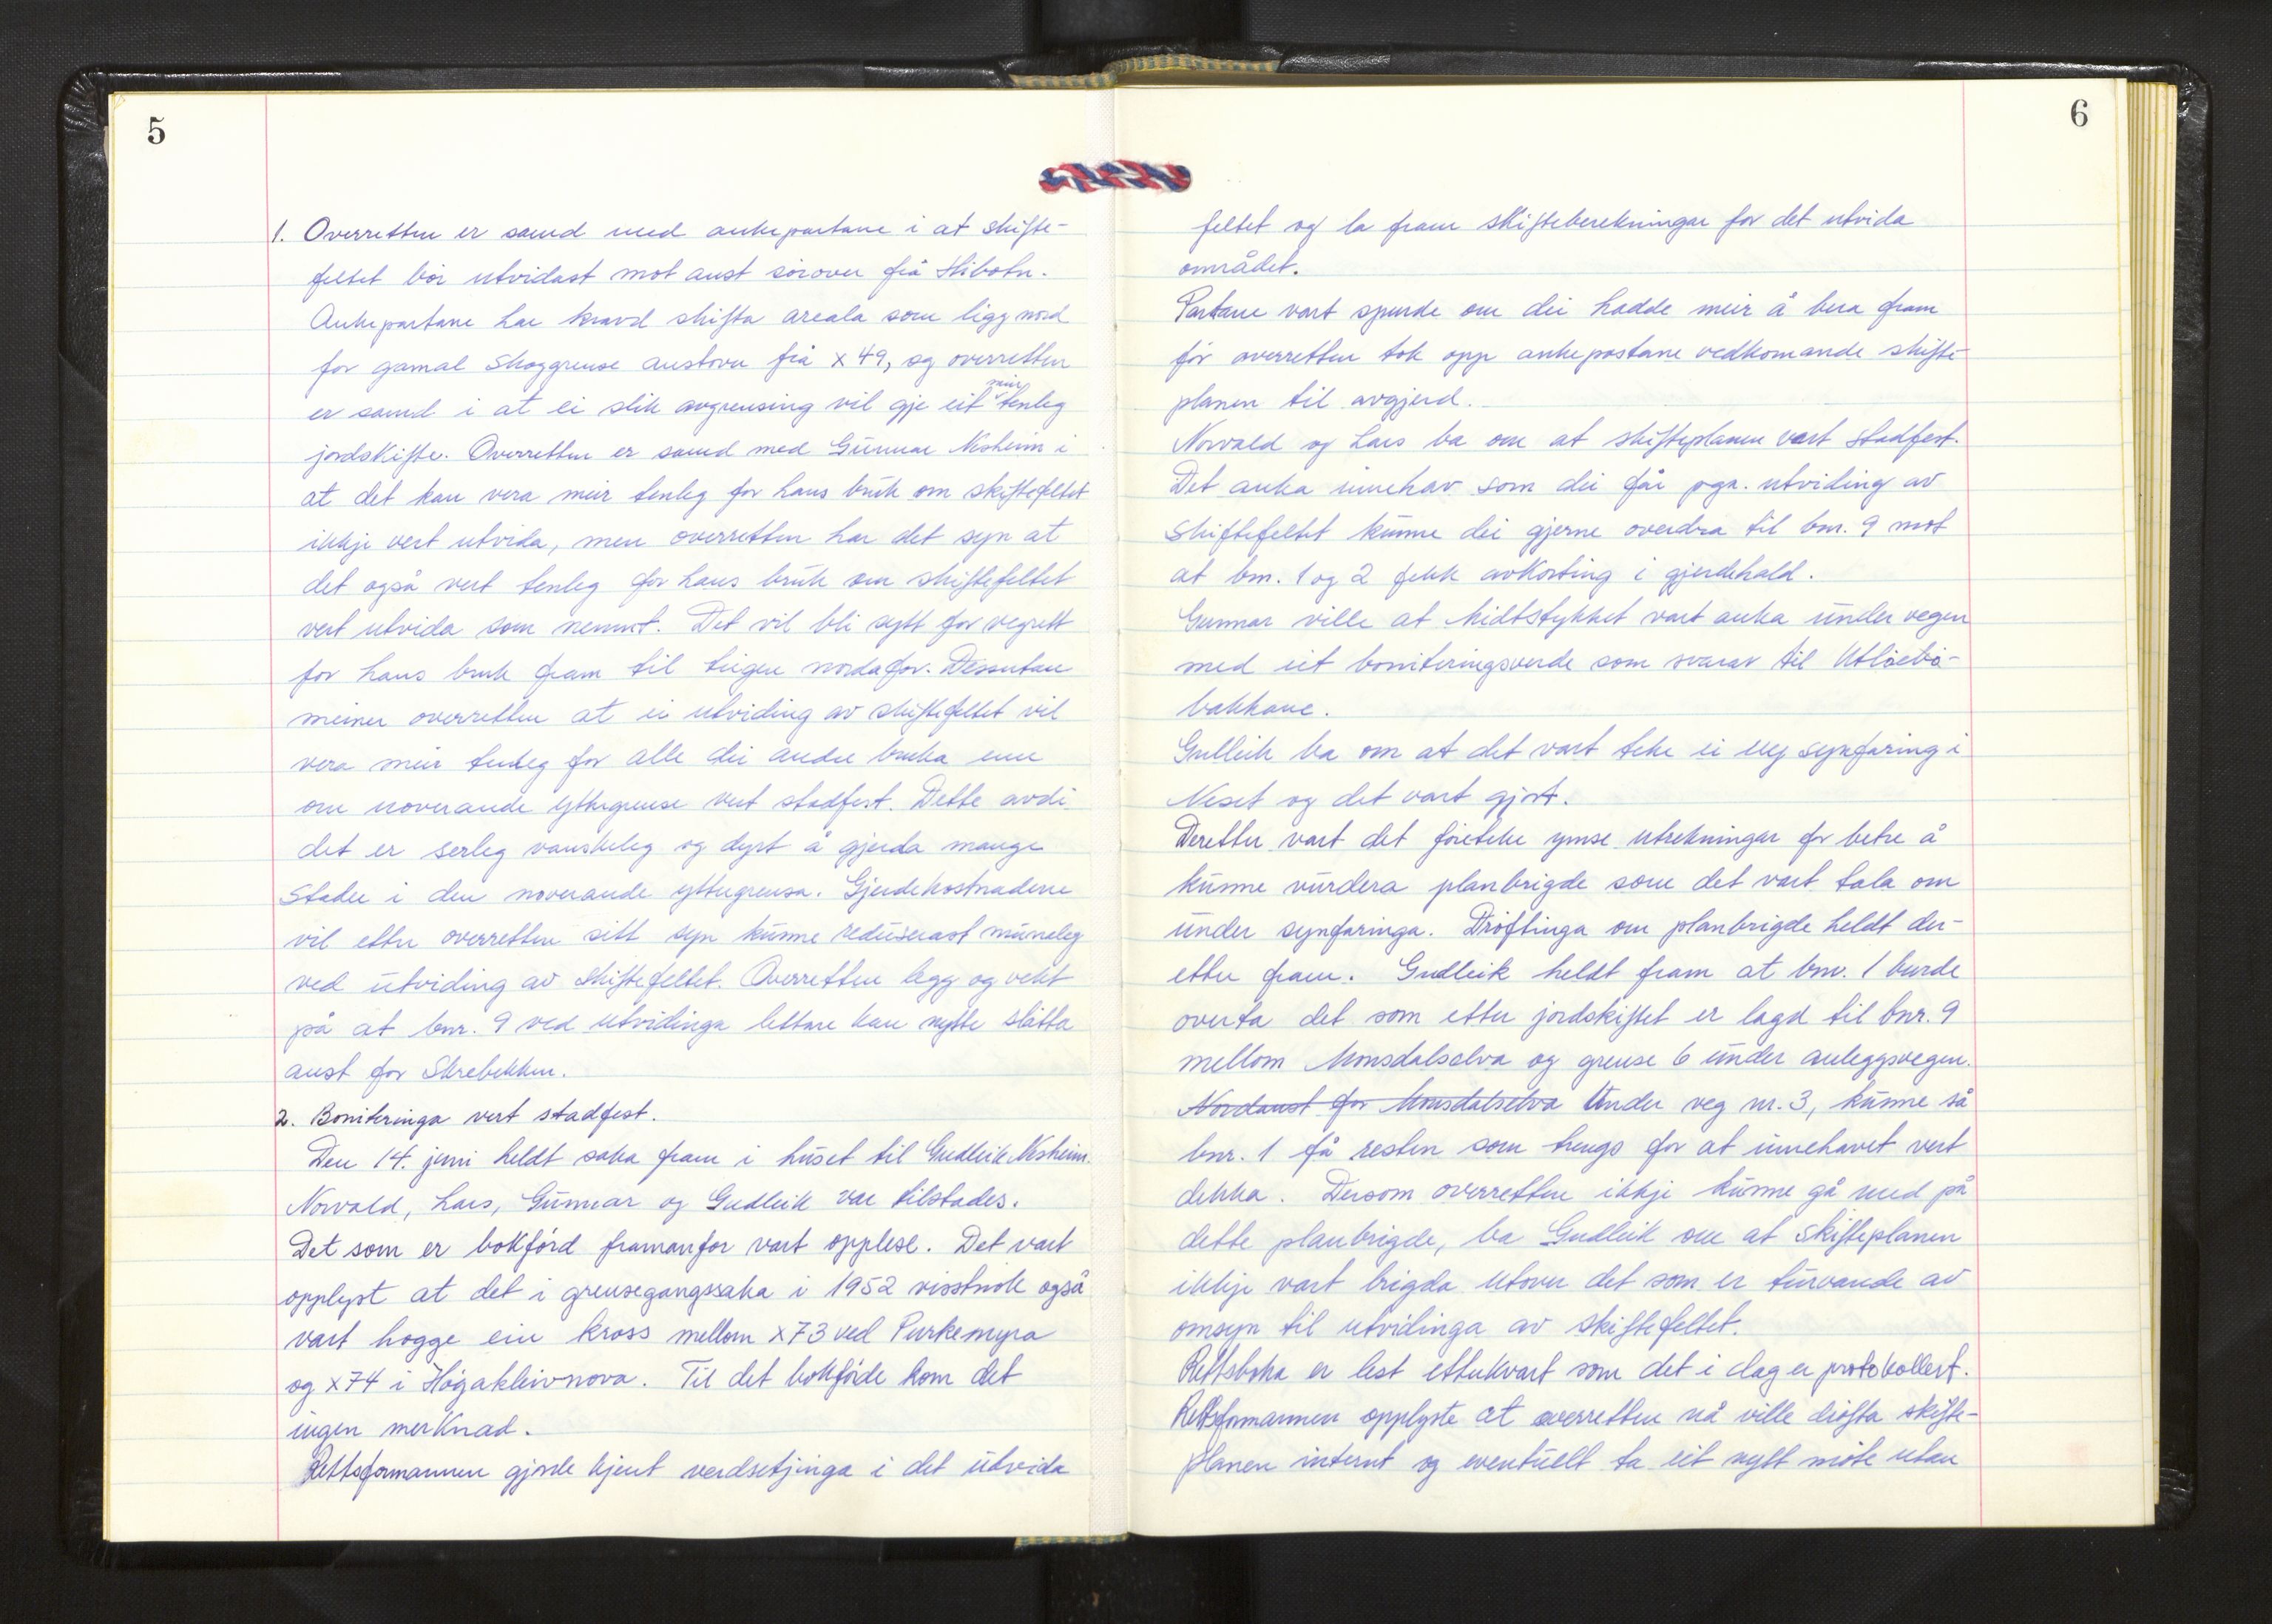 5
1. Overretten er samd med ankepartane i at skifte-
feltet bør utvidast mot aust sørover frå Stibotn.
Ankepartane har kravd skifta areala som ligg nord
for gamal skoggrense austover frå x 49, og overretten
er samd i at ei slik avgrensing vil gje eit meir tenleg
jordskifte. Overretten er samd med Gunnar Nesheim i
at det kan vera meir tenleg for hans bruk om skiftefeltet
ikkje vert utvida, men overretten har det syn at
det også vert tenleg for hans bruk om skiftefeltet
vert utvida som nemnt. Det vil bli sytt for vegrett
for hans bruk fram til teigen nordafor. Dessutan
meiner overretten at ei utviding av skiftefeltet vil
vera meir tenleg for alle dei andre bruka enn
om noverande yttergrense vert stadfest. Dette avdi
det er serleg vanskeleg og dyrt å gjerda mange
stader i den noverande yttergrensa. Gjerdekostnadene
vil etter overretten sitt syn kunne reduserast muneleg
ved utviding av skiftefeltet. Overretten legg og vekt
på at bnr. 9 ved utvidinga lettare kan nytte slåtta
aust for Skrebekken.
2. Boniteringa vert stadfest.
Den 14. juni heldt saka fram i huset til Gudleik Nesheim.
Norvald, Lars, Gunnar og Gudleik var tilstades.
Det som er bokførd framanfor vart opplese. Det vart
opplyst at det i grensegangssaka i 1952 visstnok også
vart hogge ein kross mellom x73 ved Purkemyra
og x74 i Høgakleivnova. Til det bokførde kom det
ingen merknad.
Rettsformannen gjorde kjent verdsetjinga i det utvida
6
feltet og la fram skifteberekningar for det utvida
området.
Partane vart spurde om dei hadde meir å bera fram
før overretten tok opp ankepostane vedkomande skifte-
planen til avgjerd.
Norvald og Lars ba om at skifteplanen vart stadfest.
Det auka innehav som dei får pga. utviding av
skiftefeltet kunne dei gjerne overdra til bnr. 9 mot
at bnr. 1 og 2 fekk avkorting i gjerdehald.
Gunnar ville at Midtstykket vart auka under vegen
med eit boniteringsverde som svarar til Utløebø-
bakkane.
Gulleik ba om at det vart teke ei ny synfaring i
Neset og det vart gjort.
Deretter vart det føreteke ymse utrekningar for betre å
kunne vurdera planbrigde som det vart tala om
under synfaringa. Drøftinga om planbrigde heldt der-
etter fram. Gudleik heldt fram at bnr. 1 burde
overta det som etter jordskiftet er lagd til bnr. 9
mellom Monsdalselva og grense 6 under anleggsvegen.
Nordaust for Monsdalselva Under veg nr. 3, kunne så
bnr. 1 få resten som trengs for at innehavet vert
dekka. Dersom overretten ikkje kunne gå med på
dette planbrigde, ba Gudleik om at skifteplanen
ikkje vart brigda utover det som er turvande av
omsyn til utvidinga av skiftefeltet.
Rettsboka er lest etterkvart som det i dag er protokollert.
Rettsformannen opplyste at overretten nå ville drøfta skifte-
planen internt og eventuellt ta eit nytt møte utan